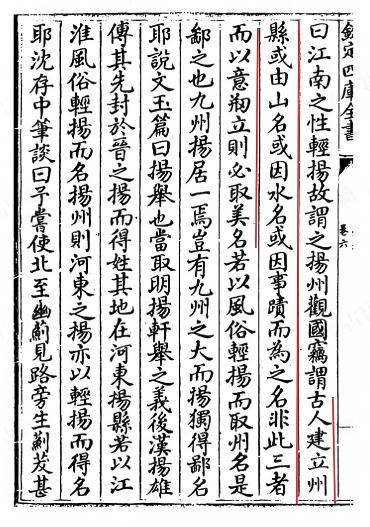 欽定四庫全書
卷六
曰江南之性輕揚故謂之揚州觀國竊謂古人建立州
縣或由山名或因水名或因事蹟而為之名非此三者
而以意剏立則必取美名若以風俗輕揚而取州名是
鄙之也九州揚居一焉豈有九州之大而揚獨得鄙名
耶說文玉篇曰揚舉也當取明揚軒舉之義後漢揚雄
傳其先封於晉之揚而得姓其地在河東揚縣若以江
淮風俗輕揚而名揚州則河東之揚亦以輕揚而得名
耶沈存中筆談曰予嘗使北至幽薊見路旁生薊茇甚